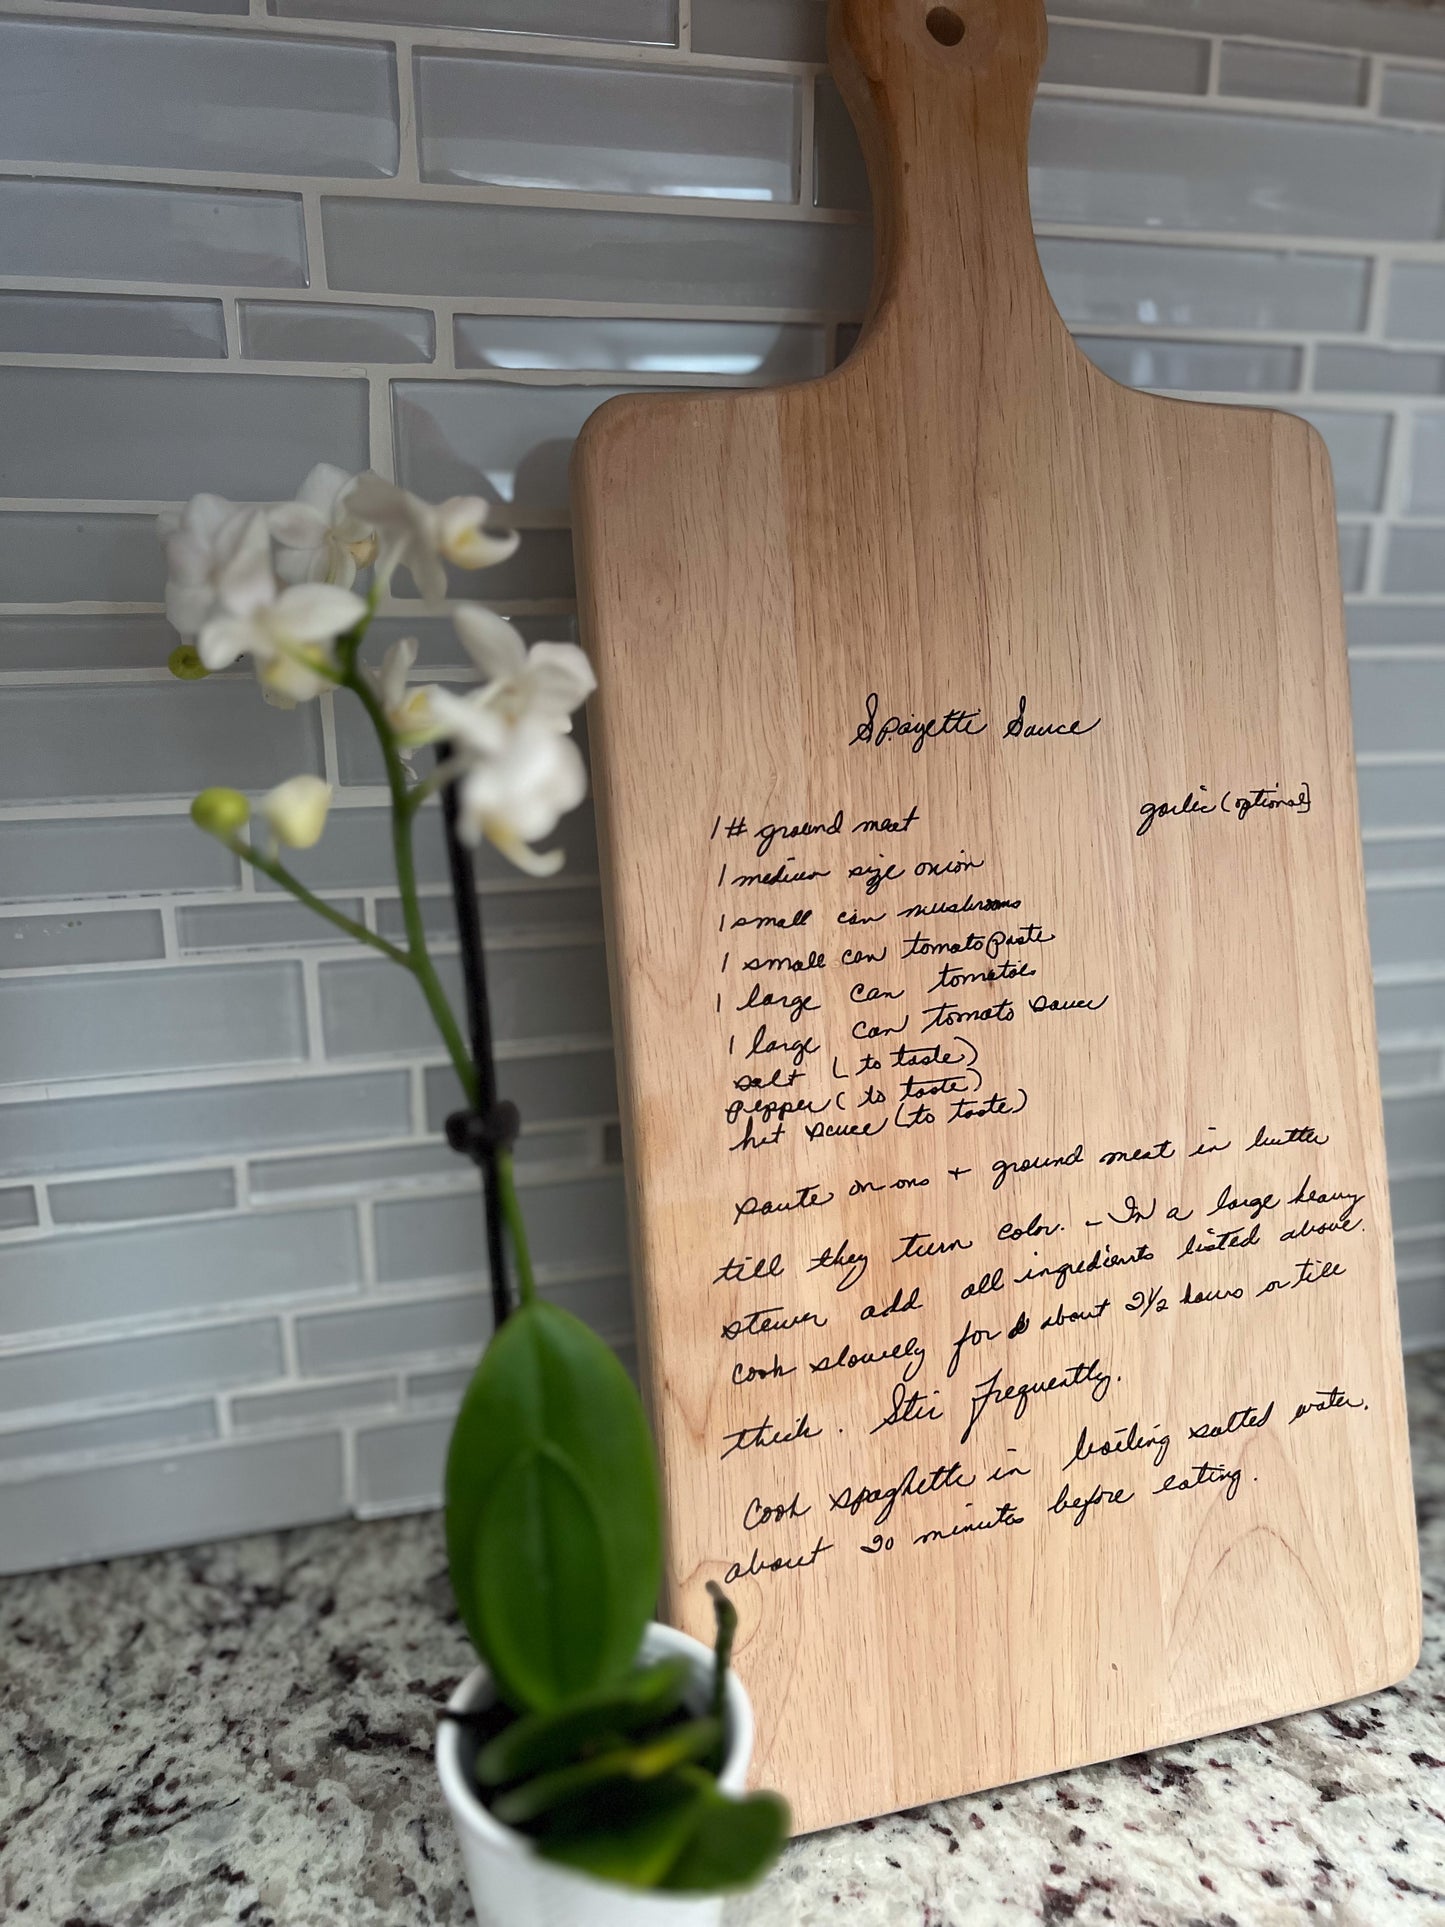 Spagetti Sauce
garlic (optional)
1# ground meat
1 medium size onion
1 small can mushrooms
1 small can tomato paste
1 large can tomatoes
1 large can tomato sauce
salt (to taste)
pepper (to taste)
hot sauce (to taste)
saute onions + ground meat in butter
till they turn color. - In a large heavy
stewer add all ingredients listed above.
cook slowely for about 2 1/2 hours or till
thick. Stir frequently.
Cook spaghetti in boiling salted water.
about 20 minutes before eating.